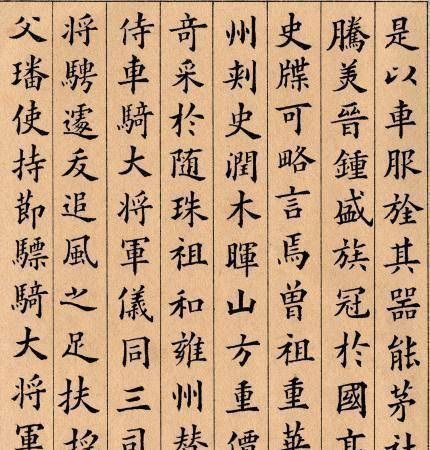 是以車服旌其器能茅社
騰美晉鍾盛族冠於國高
史牒可略言焉曾祖重華
州刾史潤木暉山方重價
奇采於随珠祖和雍州賛
侍車騎大將軍儀同三司
將騁遽夭追風之足扶搖
父璠使持節驃騎大將軍